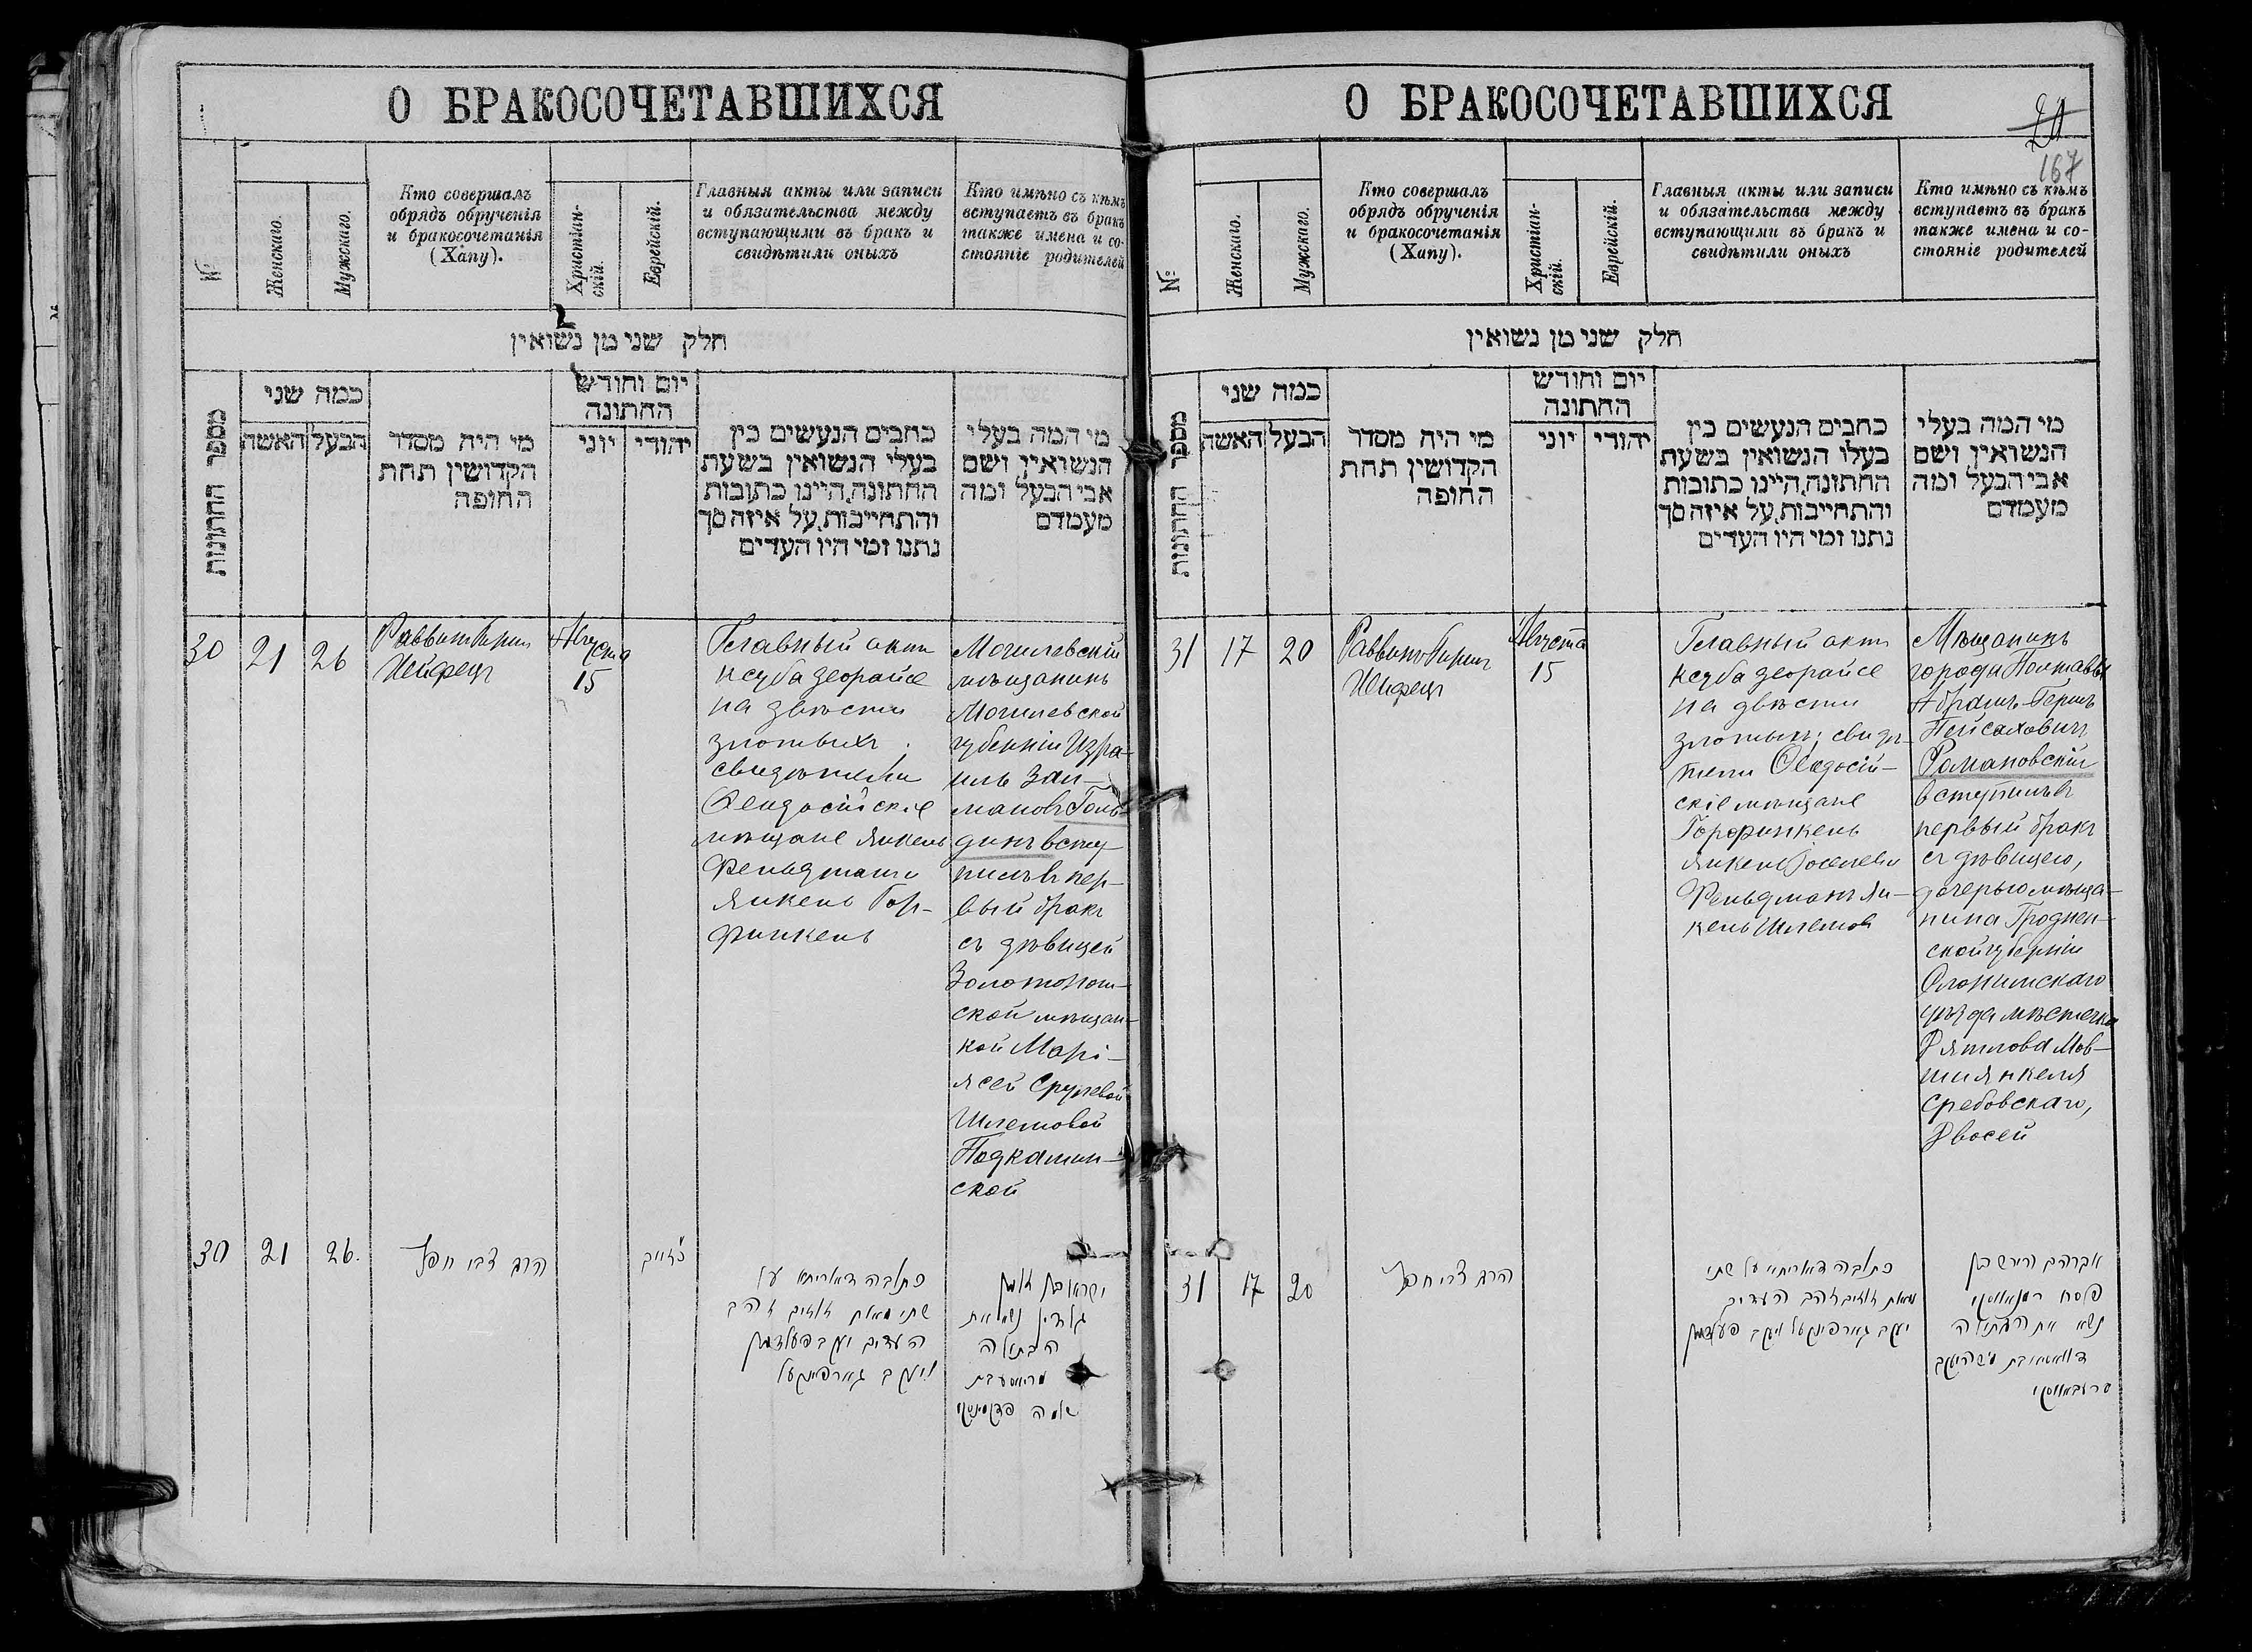 О БРАКОСОЧЕТАВШИХСЯ
№
Женскаго.
Мужскаго.
Кто совершалъ
обрядъ обрученія
и бракосочетанія
(Хапу).
Христіан-
скій.
Еврейскій.
Главныя акты или записи
и обязательства между
вступающими въ бракъ и
свидѣтили оныхъ
Кто имѣно съ кѣмъ
вступаетъ въ бракъ
также имена и со-
стояніе родителей
חלק שני מן נשואין
מספר החתונות
כמה שני
האשה
הבעל
מי היה מסדר
הקדושין תחת
החופה
יום וחודש
החתונה
יוני
יהודי
כתבים הנעשים בין
בעלי הנשואין בשעת
החתונה, היינו כתובות
והתחייבות, על איזה סך
נתנו ומי היו העדים
מי המה בעלי
הנשואין ושם
אבי הבעל ומה
מעמדם
30
21
26
Раввинъ Гирш
Хейфецъ
Августа
15
Главный актъ
ксуба деорайсе
на двѣсти
злотыхъ;
свидѣтели
Феодосійскіе
мѣщане Янкель
Фельдманъ и
Янкель Гор-
финкель
Могилевскій
мѣщанинъ
Могилевской
губерніи Изра-
иль Зал-
мановъ Голь-
динъ всту-
пилъ въ пер-
вый бракъ
съ дѣвицей
Золотонош-
ской мѣщан-
кой Марі-
ясей Срулевой
Шлемовой
Подкамин-
ской
30
21
26.
הרב צבי חפץ
כתובה דאורייתא על
שתי מאות זוזים זהב
העדים יעקב פעלדמן
ויעקב גארפינקעל
ישראל בן זלמן
גולדין נשא את
הבתולה
שלמה
О БРАКОСОЧЕТАВШИХСЯ
20
167
№
Женскаго.
Мужскаго.
Кто совершалъ
обрядъ обрученія
и бракосочетанія
(Хапу).
Христіан-
скій.
Еврейскій.
Главныя акты или записи
и обязательства между
вступающими въ бракъ и
свидѣтили оныхъ
Кто имѣно съ кѣмъ
вступаетъ въ бракъ
также имена и со-
стояніе родителей
חלק שני מן נשואין
מספר החתונות
כמה שני
האשה
הבעל
מי היה מסדר
הקדושין תחת
החופה
יום וחודש
החתונה
יוני
יהודי
כתבים הנעשים בין
בעלי הנשואין בשעת
החתונה, היינו כתובות
והתחייבות, על איזה סך
נתנו ומי היו העדים
מי המה בעלי
הנשואין ושם
אבי הבעל ומה
מעמדם
31
17
20
Раввинъ Гирш
Хейфецъ
Августа
15
Главный актъ
ксуба деорайсе
на двѣсти
злотыхъ; свидѣ-
тели Ѳеодосій-
скіе мѣщане
Горфинкель
Янкель
Фельдманъ Ян-
кель Шлемов
Мѣщанинъ
города Полтавы
Абрамъ-Гершъ
Пейсаховичъ
Романовскій
вступилъ въ
первый бракъ
съ дѣвицею,
дочерью мѣща-
нина Гроднен-
ской губерніи
Слонимскаго
уѣзда мѣстечка
Дятлова Мов-
ши Янкеля
Сребовскаго,
Двосей
31
17
20
הרב צבי חפץ
כתובה דאורייתא על שתי
מאות זוזים זהב העדים
יעקב גארפינקעל ויעקב פעלדמן
אברהם הירש בן
פסח ראמאנאווסקי
נשא את הבתולה